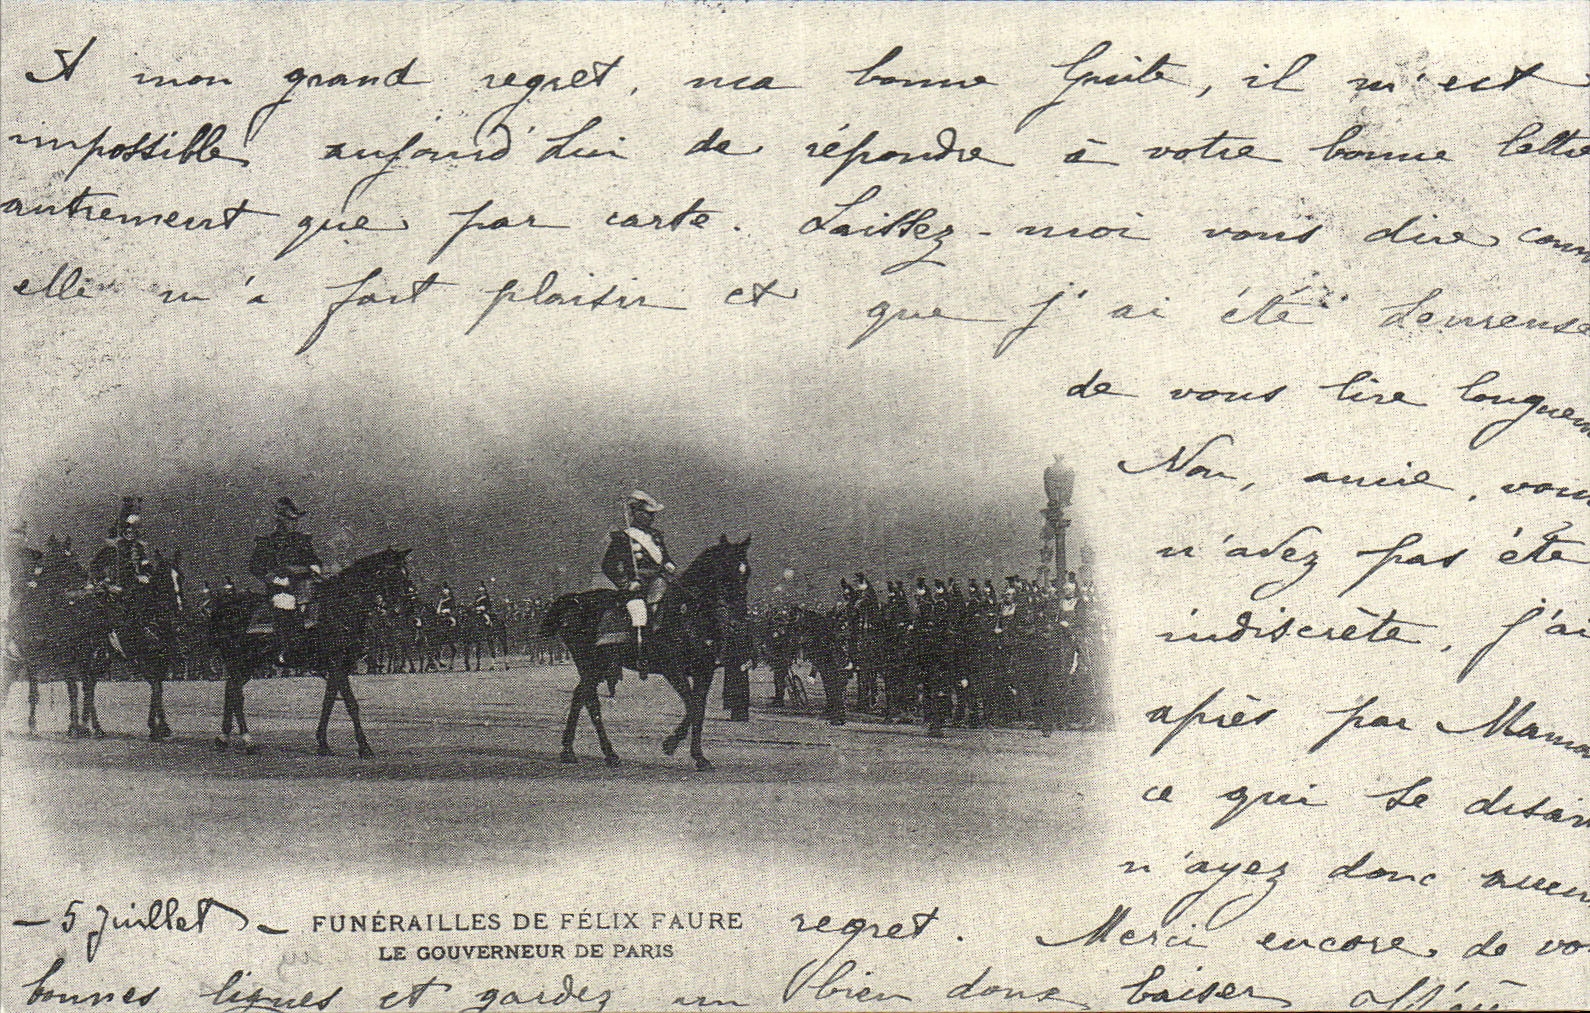 A mon grand regret, ma bonne Guite, il m'est
impossible aujourd'hui de répondre à votre bonne lettre
autrement que par carte. Laissez-moi vous dire com
elle m'a fait plaisir et que j'ai été heureuse
de vous lire longuem
Non, amie, vous
n'avez pas été
indiscrète, j'ai
après par Mama
ce qui se disai
n'ayez donc aucun
- 5 juillet - FUNÉRAILLES DE FÉLIX FAURE regret. Merci encore de vo
LE GOUVERNEUR DE PARIS
bonnes lignes et gardez un bien doux baiser